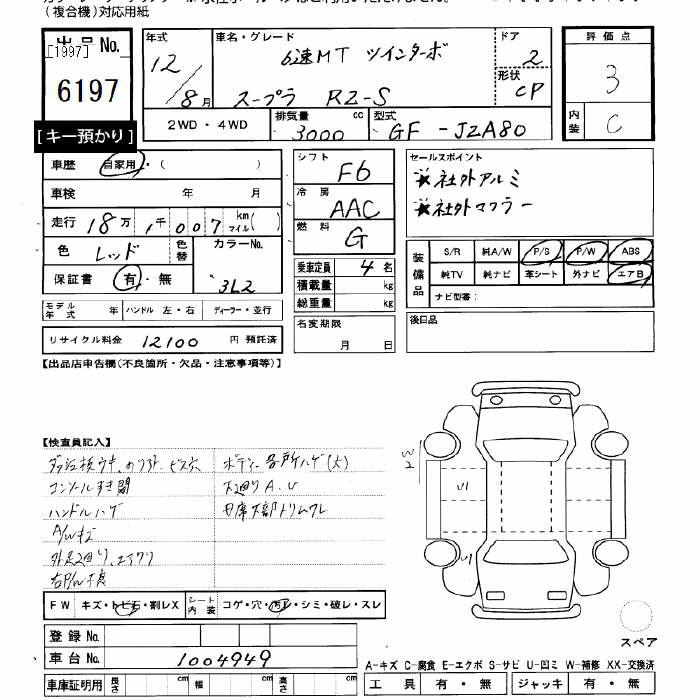 (複合機)対応用紙
出品 No.
[1997]
6197
[キー預かり]
年式 車名・グレード ドア 評価点
12/8月 6速MT ツインターボ 2 3
スープラ RZ-S 形状 CP
2WD・4WD 排気量 3000 cc 型式 GF-JZA80 内装 C
車歴 自家用・( )
車検 年 月
走行 18万 1千007 km マイル( )
色 レッド 色替 カラーNo. 3L2
保証書 有・無
モデル年式 年 ハンドル 左・右 ディーラー・並行
リサイクル料金 12100 円 預託済
シフト F6
冷房 AAC
燃料 G
乗車定員 4 名
積載量 kg
総重量 kg
名変期限
月 日
セールスポイント
★社外アルミ
★社外マフラー
装備品 S/R 純A/W P/S P/W ABS
純TV 純ナビ 革シート 外ナビ エアB
ナビ型番:
後日品
【出品店申告欄(不良箇所・欠品・注意事項等)】
【検査員記入】
ボディー各所ハゲ(大)
コンソールすき間 下廻りA、U
ハンドルハゲ
A/Wキズ
外足廻り、エアクリ
右P/W不良
FW キズ・トビ石・割レX シート内装 コゲ・穴・汚レ・シミ・破レ・スレ
登録 No.
車台 No. 1004949
車庫証明用 長さ cm 幅 cm 高さ cm
U1
U1
スペア
A-キズ C-腐食 E-エクボ S-サビ U-凹ミ W-補修 XX-交換済
工具 有・無 ジャッキ 有・無